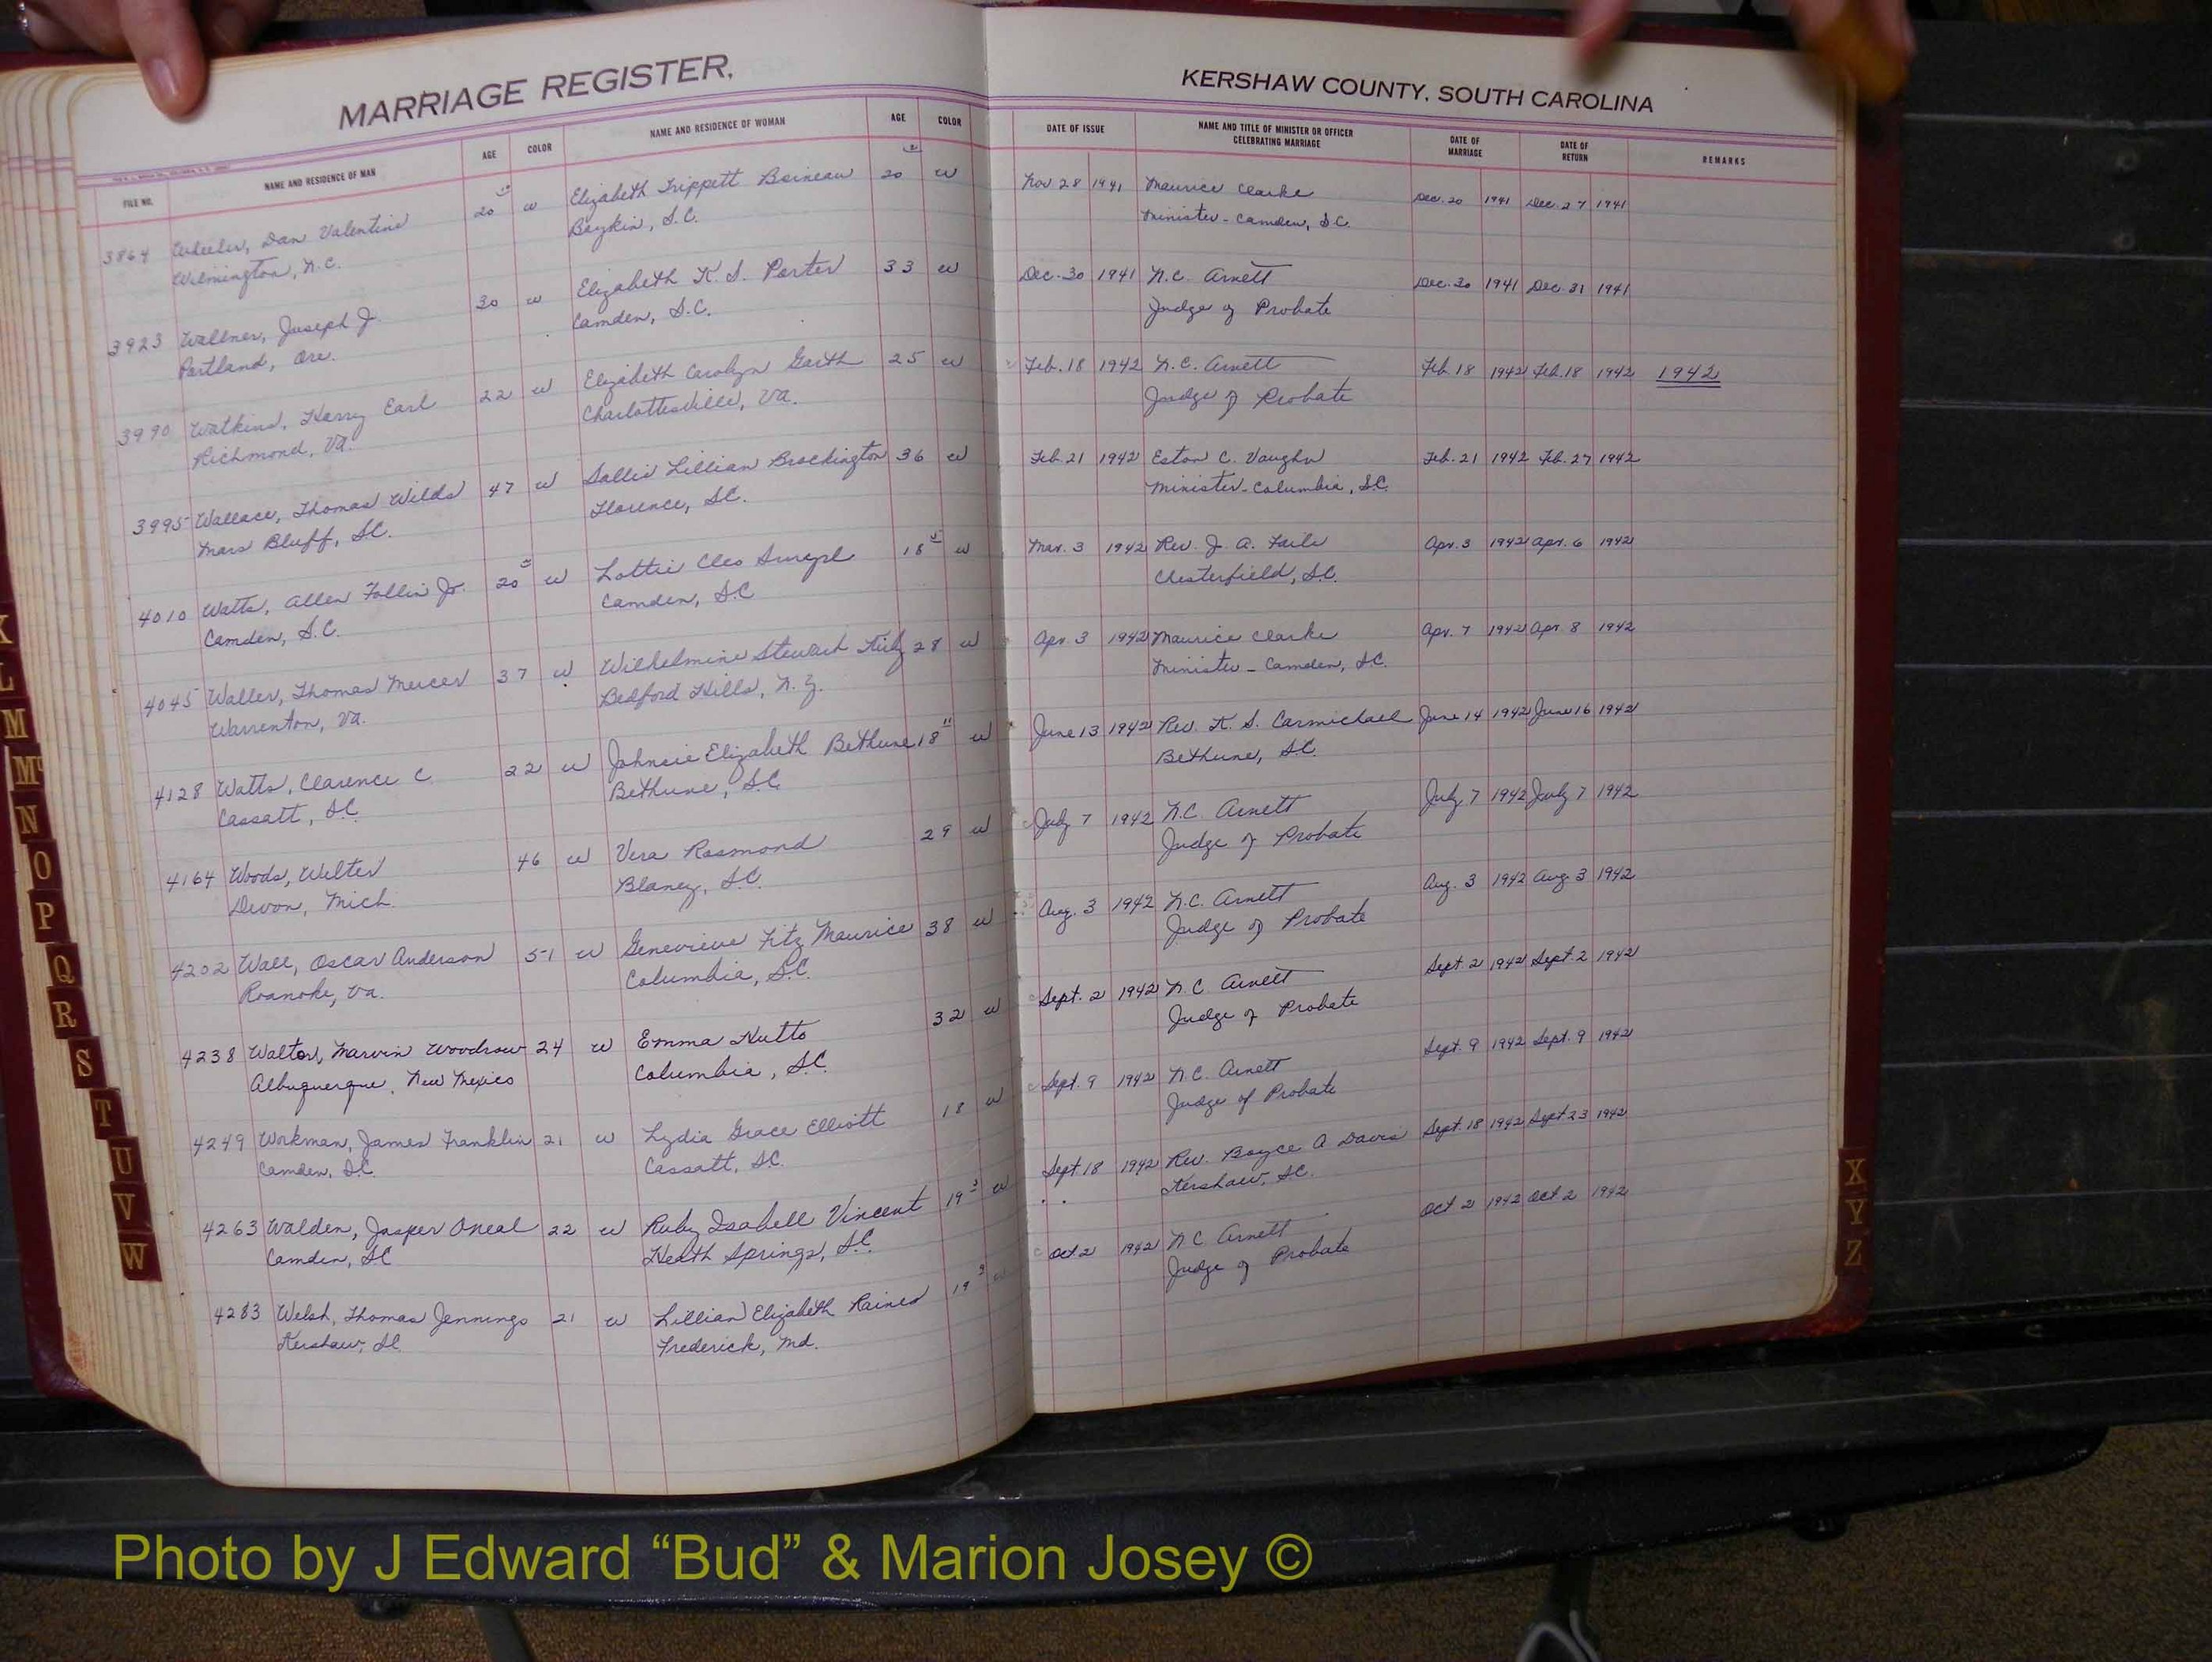 MARRIAGE REGISTER,
KERSHAW COUNTY, SOUTH CAROLINA
FILE NO. NAME AND RESIDENCE OF MAN AGE COLOR NAME AND RESIDENCE OF WOMAN AGE COLOR DATE OF ISSUE NAME AND TITLE OF MINISTER OR OFFICER CELEBRATING MARRIAGE DATE OF MARRIAGE DATE OF RETURN REMARKS
3864 Wheeler, Dan Valentine 20 w Elizabeth Trippett Boineau 20 w Nov 28 1941 Maurice Clarke Dec. 20 1941 Dec. 27 1941
Wilmington, N.C. Boykin, S.C. Minister - Camden, S.C.
3923 Wallner, Joseph J. 30 w Elizabeth K. S. Porter 33 w Dec. 30 1941 N.C. Arnett Dec. 30 1941 Dec. 31 1941
Portland, Ore. Camden, S.C. Judge of Probate
3990 Watkins, Harry Earl 22 w Elizabeth Carolyn Garth 25 w Feb. 18 1942 N.C. Arnett Feb. 18 1942 Feb. 18 1942 1942
Richmond, Va. Charlottesville, Va. Judge of Probate
3995 Wallace, Thomas Wilds 47 w Sallie Lillian Brockington 36 w Feb. 21 1942 Eston C. Vaughn Feb. 21 1942 Feb. 27 1942
Mars Bluff, S.C. Florence, S.C. Minister - Columbia, S.C.
4010 Watts, Allen Follin Jr. 20 w Lottie Cleo 18 w Mar. 3 1942 Rev. J. A. Faile Apr. 3 1942 Apr. 6 1942
Camden, S.C. Camden, S.C Chesterfield, S.C.
4045 Waller, Thomas Mercer 37 w Wilhelmine Stewart 28 w Apr. 3 1942 Maurice Clarke Apr. 7 1942 Apr 8 1942
Warrenton, Va. Bedford Hills, N.Y. Minister - Camden, S.C.
4128 Watts, Clarence C 22 w Johnsie Elizabeth Bethune 18 11 w June 13 1942 Rev. K. S. Carmichael June 14 1942 June 16 1942
Cassatt, S.C. Bethune, S.C. Bethune, S.C.
4164 Woods, Wilter 46 w Vera Rosmond 29 w July 7 1942 N.C. Arnett July 7 1942 July 7 1942
Devon, Mich. Blaney, S.C. Judge of Probate
4202 Wall, Oscar Anderson 51 w Genevieve Fitz Maurice 38 w Aug. 3 1942 N.C. Arnett Aug. 3 1942 Aug 3 1942
Roanoke, Va. Columbia, S.C. Judge of Probate
4238 Walton, Marvin Woodrow 24 w Emma Hutto 32 w Sept. 2 1942 N.C. Arnett Sept. 2 1942 Sept. 2 1942
Albuquerque, New Mexico Columbia, S.C. Judge of Probate
4249 Workman, James Franklin 21 w Lydia Grace Elliott 18 w Sept. 9 1942 N.C. Arnett Sept. 9 1942 Sept. 9 1942
Camden, S.C. Cassatt, S.C. Judge of Probate
4263 Walden, Jasper Oneal 22 w Ruby Isabell Vincent 19 3 w Sept 18 1942 Rev. Boyce A Davis Sept. 18 1942 Sept 23 1942
Camden, SC Heath Springs, S.C. Kershaw, S.C.
4283 Welsh, Thomas Jennings 21 w Lillian Elizabeth Raines 19 w Oct 2 1942 N C Arnett Oct 2 1942 Oct 2 1942
Kershaw, SC Frederick, Md. Judge of Probate
K
L
M
Mc
N
O
P
Q
R
S
T
U
V
W
X
Y
Z
Photo by J Edward “Bud” & Marion Josey ©